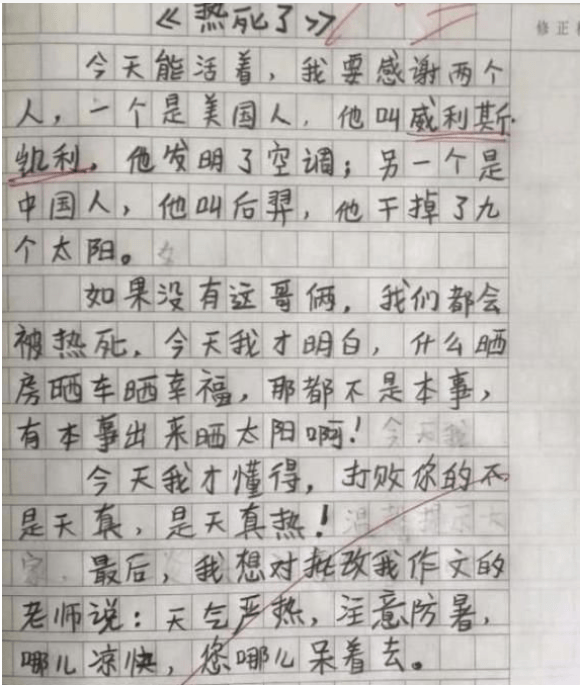 《热死了》
修正
今天能活着，我要感谢两个
人，一个是美国人，他叫威利斯
凯利，他发明了空调；另一个是
中国人，他叫后羿，他干掉了九
个太阳。
如果没有这哥俩，我们都会
被热死，今天我才明白，什么晒
房晒车晒幸福，那都不是本事，
有本事出来晒太阳啊！今天我
今天我才懂得，打败你的不
是天真，是天真热！温馨提示大
家，最后，我想对批改我作文的
老师说：天气严热，注意防暑，
哪儿凉快，您哪儿呆着去。